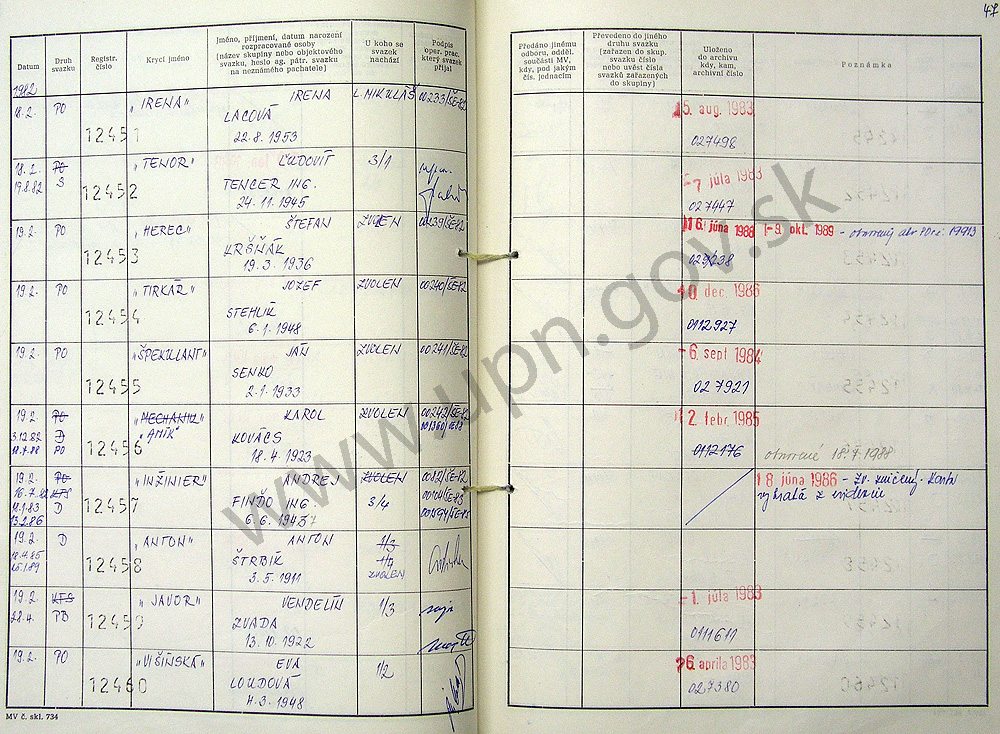 47
Datum
Druh svazku
Registr. číslo
Krycí jméno
Jméno, příjmení, datum narození
rozpracované osoby
(název skupiny nebo objektového
svazku, heslo ag. pátr. svazku
na neznámého pachatele)
U koho se
svazek
nachází
Podpis
oper. prac.
který svazek
přijal
Předáno jinému
odboru, odděl.
součásti MV,
kdy, pod jakým
čís. jednacím
Převedeno do jiného
druhu svazku
(zařazen do skup.
svazku číslo
nebo uvést čísla
svazků zařazených
do skupiny)
Uloženo
do archivu
kdy, kam,
archivní číslo
Poznámka
1982
18.2. PO 12451 „IRENA" IRENA L. MIKULÁŠ 00233/ŠE-82
LACOVÁ
22.8.1953
5. aug. 1983
027498
18.2. PO 12452 „TENOR" ĽUDOVÍT 3/1
19.8.82 S TENCER ING.
24.11.1945
-7 júla 1983
027447
19.2. PO 12453 „HEREC" ŠTEFAN ZVOLEN 00239/ŠE-82
KRŠŇÁK
19.3.1936
16. júna 1988 -9. okt. 1989 -
029238
19.2. PO 12454 „TIRKÁR" JOZEF ZVOLEN 00240/ŠE-82
STEHLÍK
6.1.1948
dec. 1986
0112927
19.2. PO 12455 „ŠPEKULLANT" JÁN ZVOLEN 00241/ŠE-82
SENKO
2.1.1933
-6. sept 1984
027921
19.2. PO 12456 „MECHANIK" KAROL ZVOLEN 00242/ŠE-82
3.12.82 D „AMÍK" KOVÁCS
18.7.88 PO 18.4.1923
12. febr. 1985
0112176 otvorené 18.7.1988
19.2. PO 12457 „INŽINIER" ANDREJ ZVOLEN
KTS FINĎO ING. 3/4
11.1.83 D 6.6.1947
13.2.86
18 júna 1986 - zv. zničený. Karta
vybratá z evidencie
19.2. D 12458 „ANTON" ANTON 1/3
18.4.85 ŠTRBÍK 1/4
3.5.1911 ZVOLEN
19.2. KTS 12459 „JAVOR" VENDELÍN 1/3
22.4. PB ZVADA
13.10.1922
-1. júla 1983
0111611
19.2. PO 12460 „VIŠINSKÁ" EVA 1/2
LOUDOVÁ
4.3.1948
26. apríla 1983
027380
MV č. skl. 734
www.upn.gov.sk